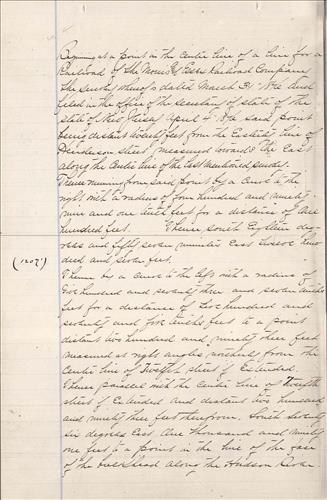 Beginning at a point in the Centre line of a line for a
Railroad of the Morris & Essex Railroad Company
the survey whereof is dated March 31" 18 and
filed in the office of the Secretary of state of the
state of New Jersey April 4" 18 Said point
being distant twenty feet from the Easterly line of
Henderson street measured towards the East
along the Centre line of the last mentioned survey.
Thence running from said point by a Curve to the
right with a radius of four hundred and ninety
nine and one tenth feet for a distance of One
hundred feet. Thence South Eighteen deg-
rees and fifty seven minutes East twelve hund-
red and seven feet.
(1207')
Thence by a Curve to the left with a radius of
five hundred and seventy three and seven tenths
feet for a distance of hundred and
seventy and five tenths feet to a point
distant two hundred and ninety three feet
measured at right angles northerly from the
Centre line of Twelfth street if Extended.
Thence parallel with the Centre line of Twelfth
street if Extended and distant two hundred
and ninety three feet therefrom, South Seventy
six degrees East One thousand and ninety
one feet to a point in the line of the face
of the bulkhead along the Hudson River